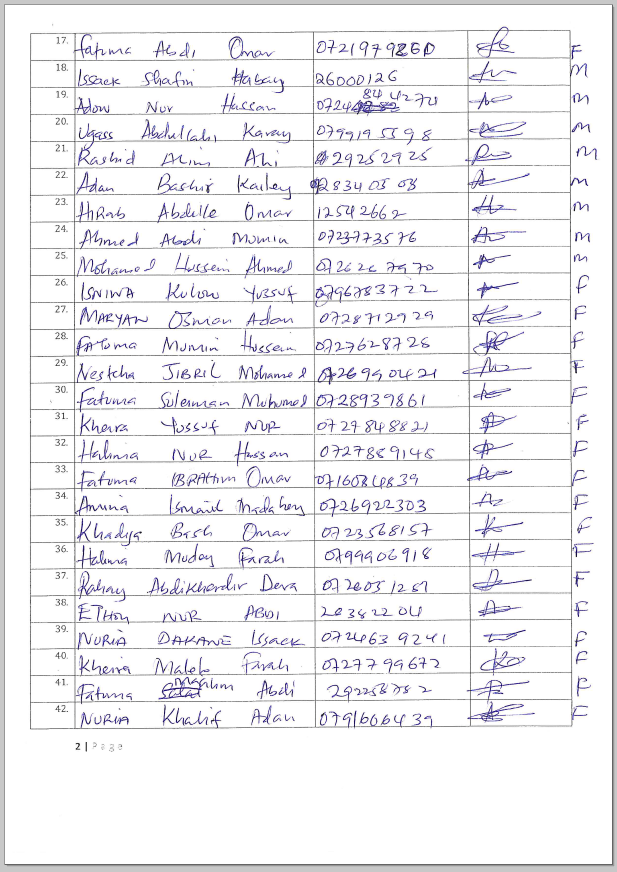 17. Fatuma Abdi Omar 0721979860 F
18. Issack Shafin Habay 26000126 M
19. Adow Nur Hassan 0724844270 M
20. Ugass Abdullahi Karay 0799195598 M
21. Rashid Alim Ali 29252925 M
22. Adan Bashir Kailey 28340303 M
23. HiRab Abdulle Omar 12542662 M
24. Ahmed Abdi Mumin 0723773576 M
25. Mohamed Hussein Ahmed 0726267970 M
26. ISNIWA Kulow YUSSUF 0796783722 F
27. MARYAN Osman Adan 0728712929 F
28. FATUMA Mumin Hussein 0727628728 F
29. Nestcha JIBRIL Mohamed 0726990421 F
30. Fatuma Suleiman Muhumed 0728939861 F
31. Kheira Yussuf NUR 0727848821 F
32. Halima NUR Hassan 0727889148 F
33. Fatuma IBRAHIM Omar 0716084839 F
34. Amina Ismail Madahey 0726922303 F
35. Khadija Bash Omar 0723568157 F
36. Halima Muday Farah 0799906918 F
37. Rahay Abdikhadir Dera 0726051251 F
38. ETHOW NUR ABDI 26382204 F
39. NURIA DAKANE Issack 0724639241 F
40. Kheira Maleb Farah 0727799672 F
41. Fatuma Maalim Abdi 292258782 F
42. NURIA Khalif Adan 0791606439 F
2 | Page